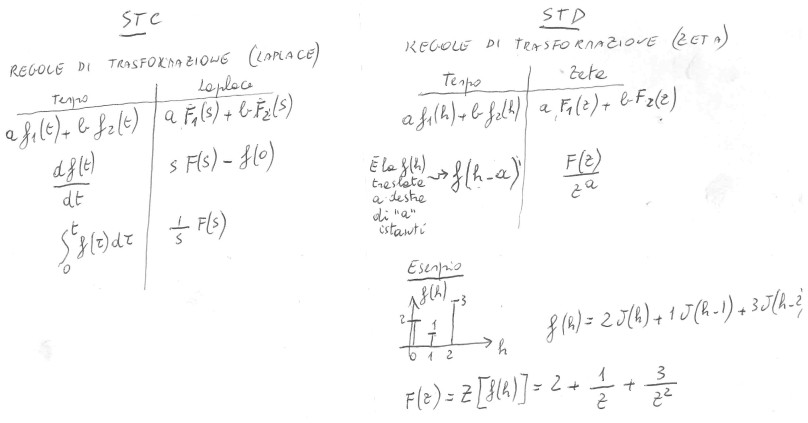 STC
REGOLE DI TRASFORMAZIONE (LAPLACE)
Tempo Laplace
a f₁(t) + b f₂(t) a F₁(s) + b F₂(s)
df(t)/dt s F(s) - f(0)
∫₀ᵗ f(τ) dτ 1/s F(s)
STD
REGOLE DI TRASFORMAZIONE (ZETA)
Tempo Zeta
a f₁(h) + b f₂(h) a F₁(z) + b F₂(z)
È la f(h)
traslata
a destra
di "a"
istanti
→ f(h-a) F(z)/zᵃ
Esempio
f(h)
2 1 3
0 1 2 h
f(h) = 2 δ(h) + 1 δ(h-1) + 3 δ(h-2)
F(z) = Z[f(h)] = 2 + 1/z + 3/z²